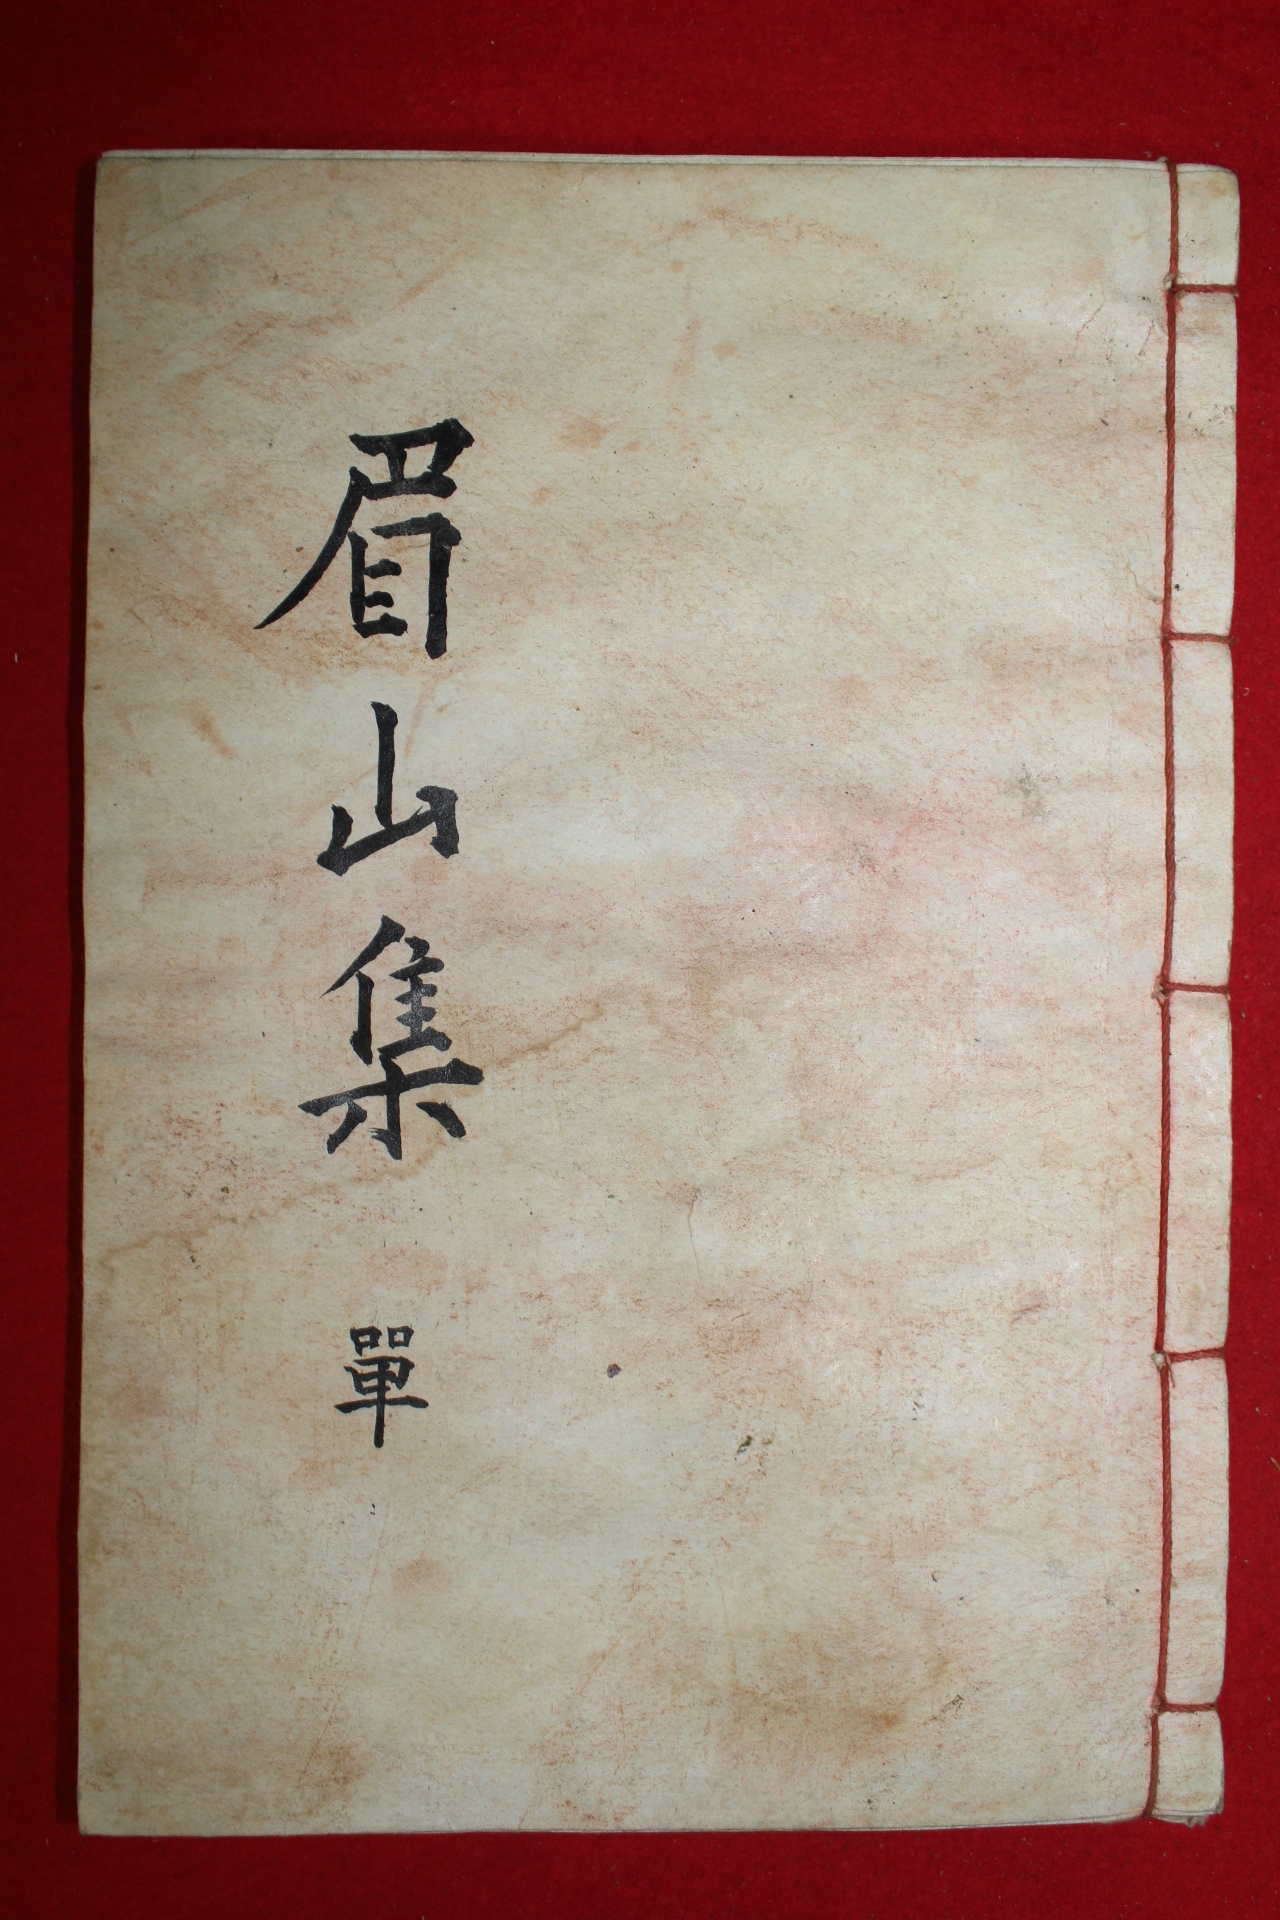 眉山集 單